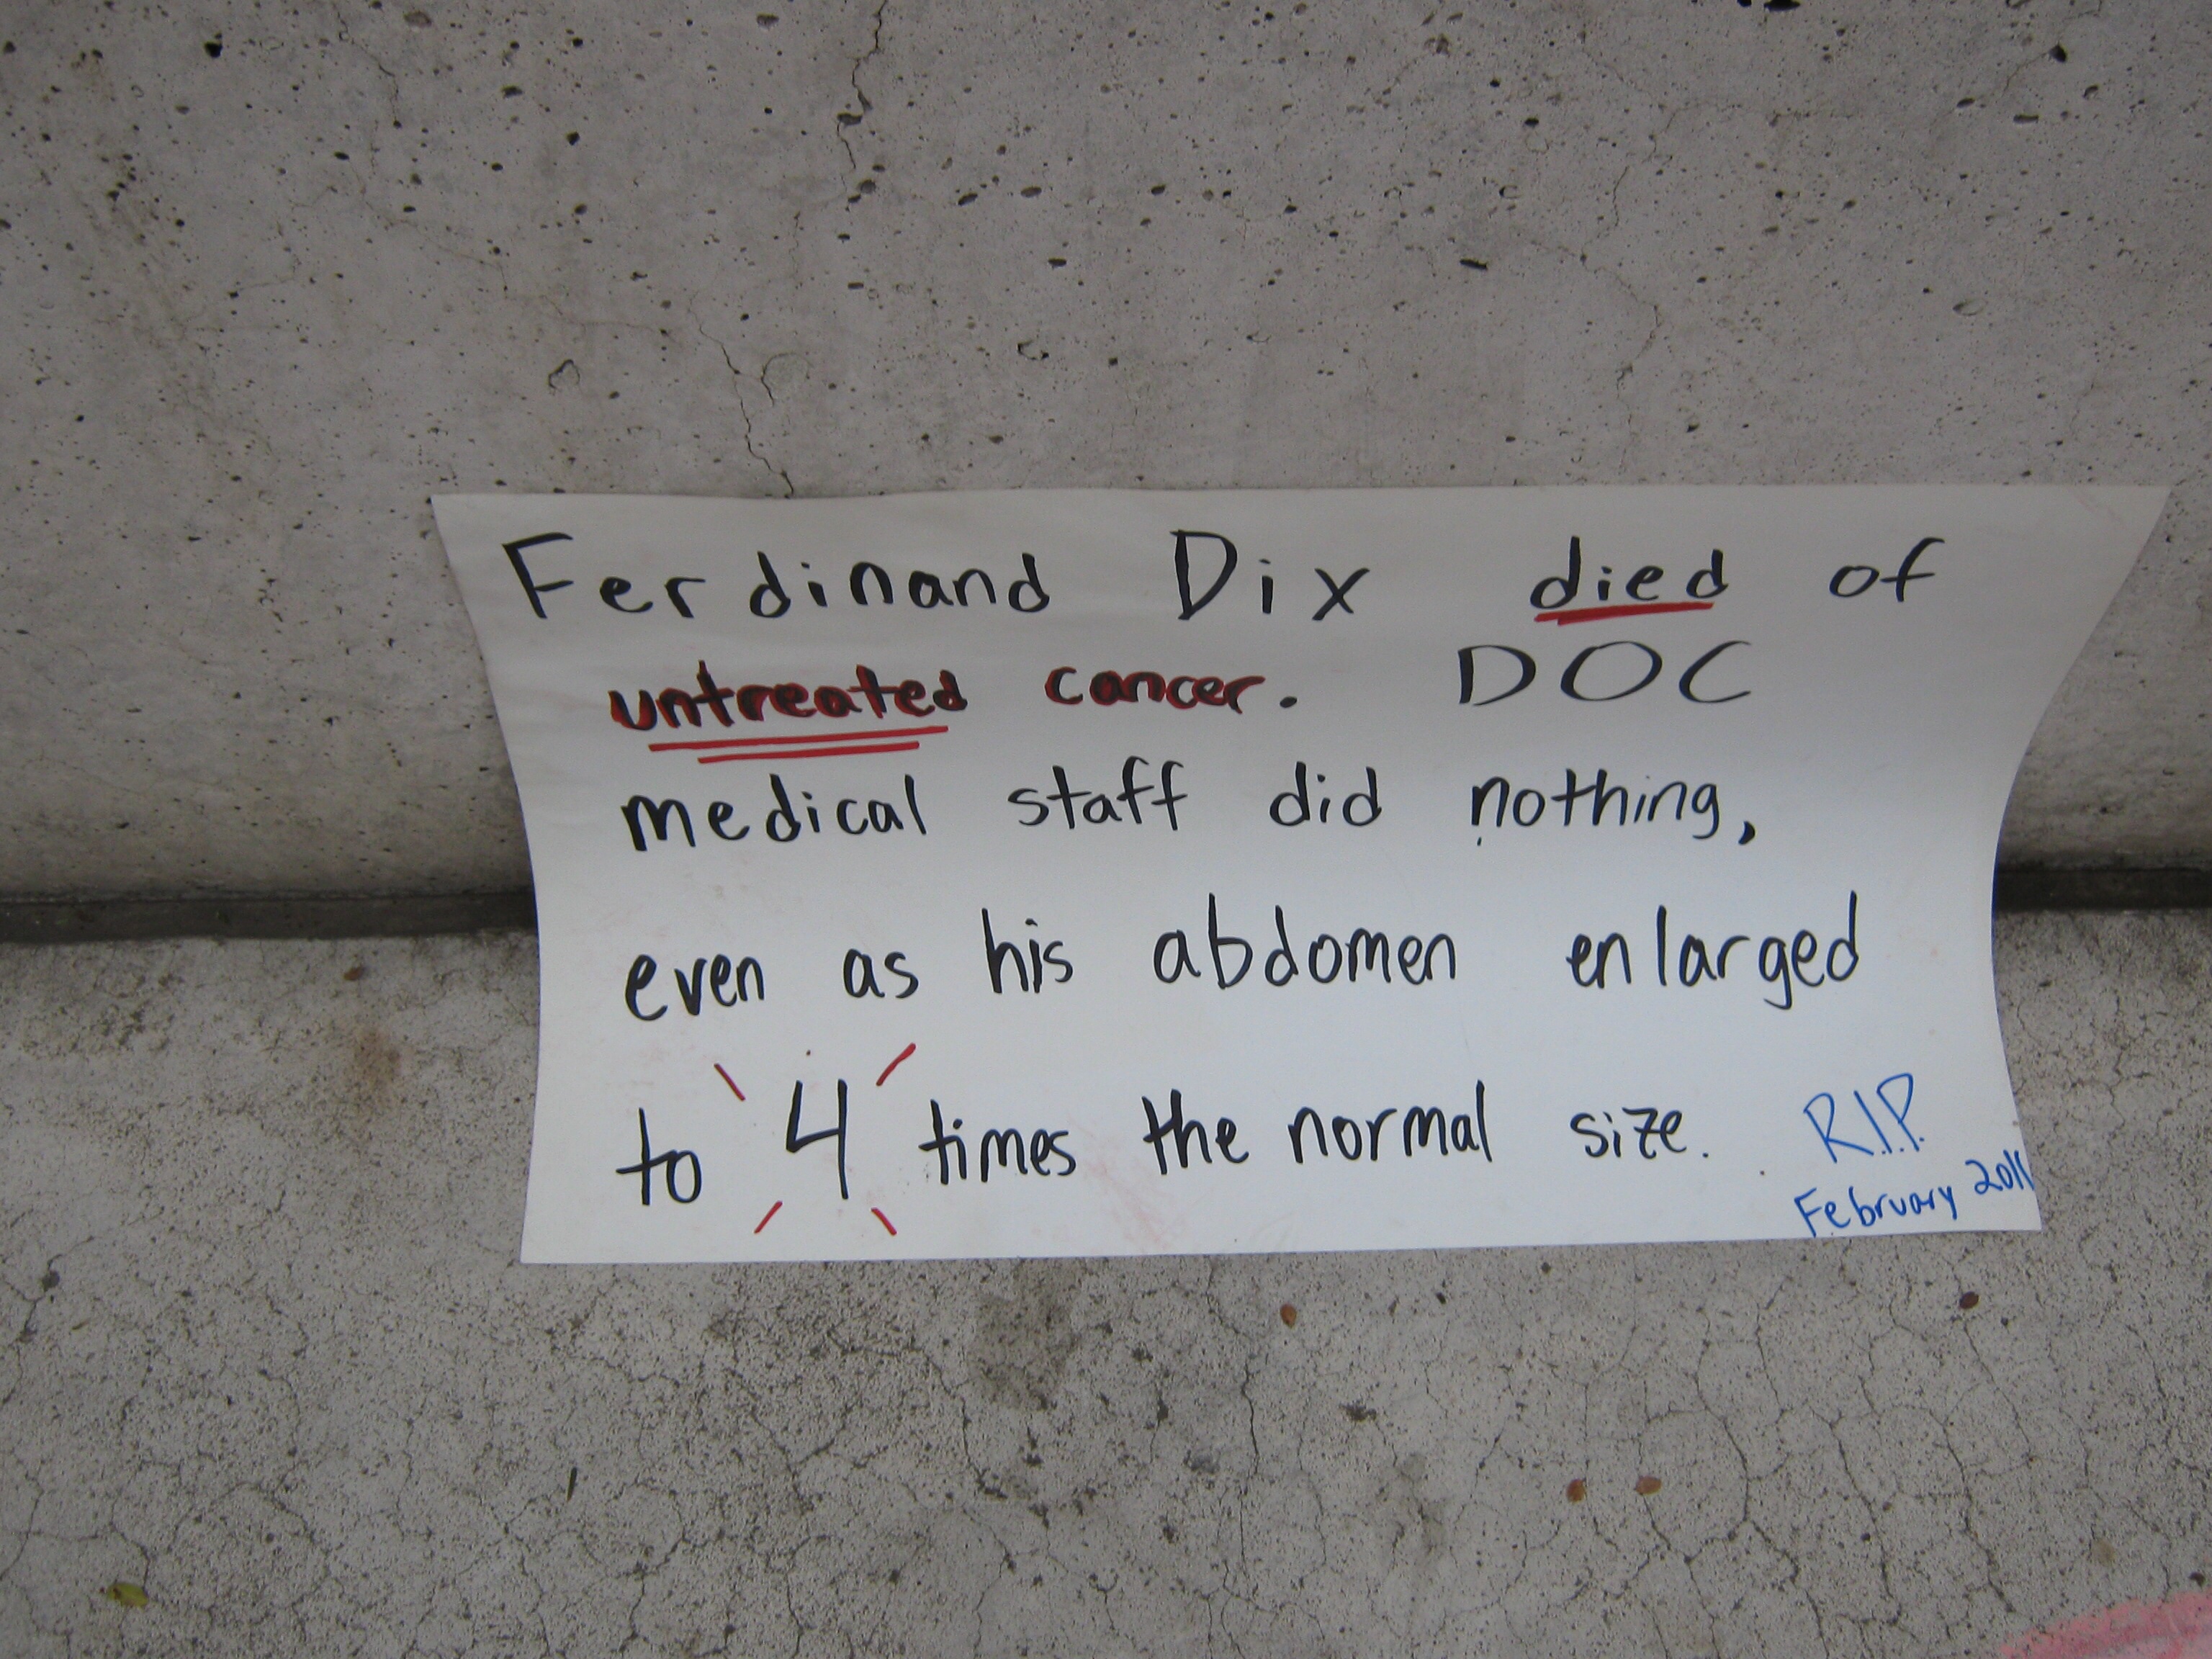 Ferdinand Dix died of
untreated cancer. DOC
medical staff did nothing,
even as his abdomen enlarged
to 4 times the normal size. R.I.P.
February 2011